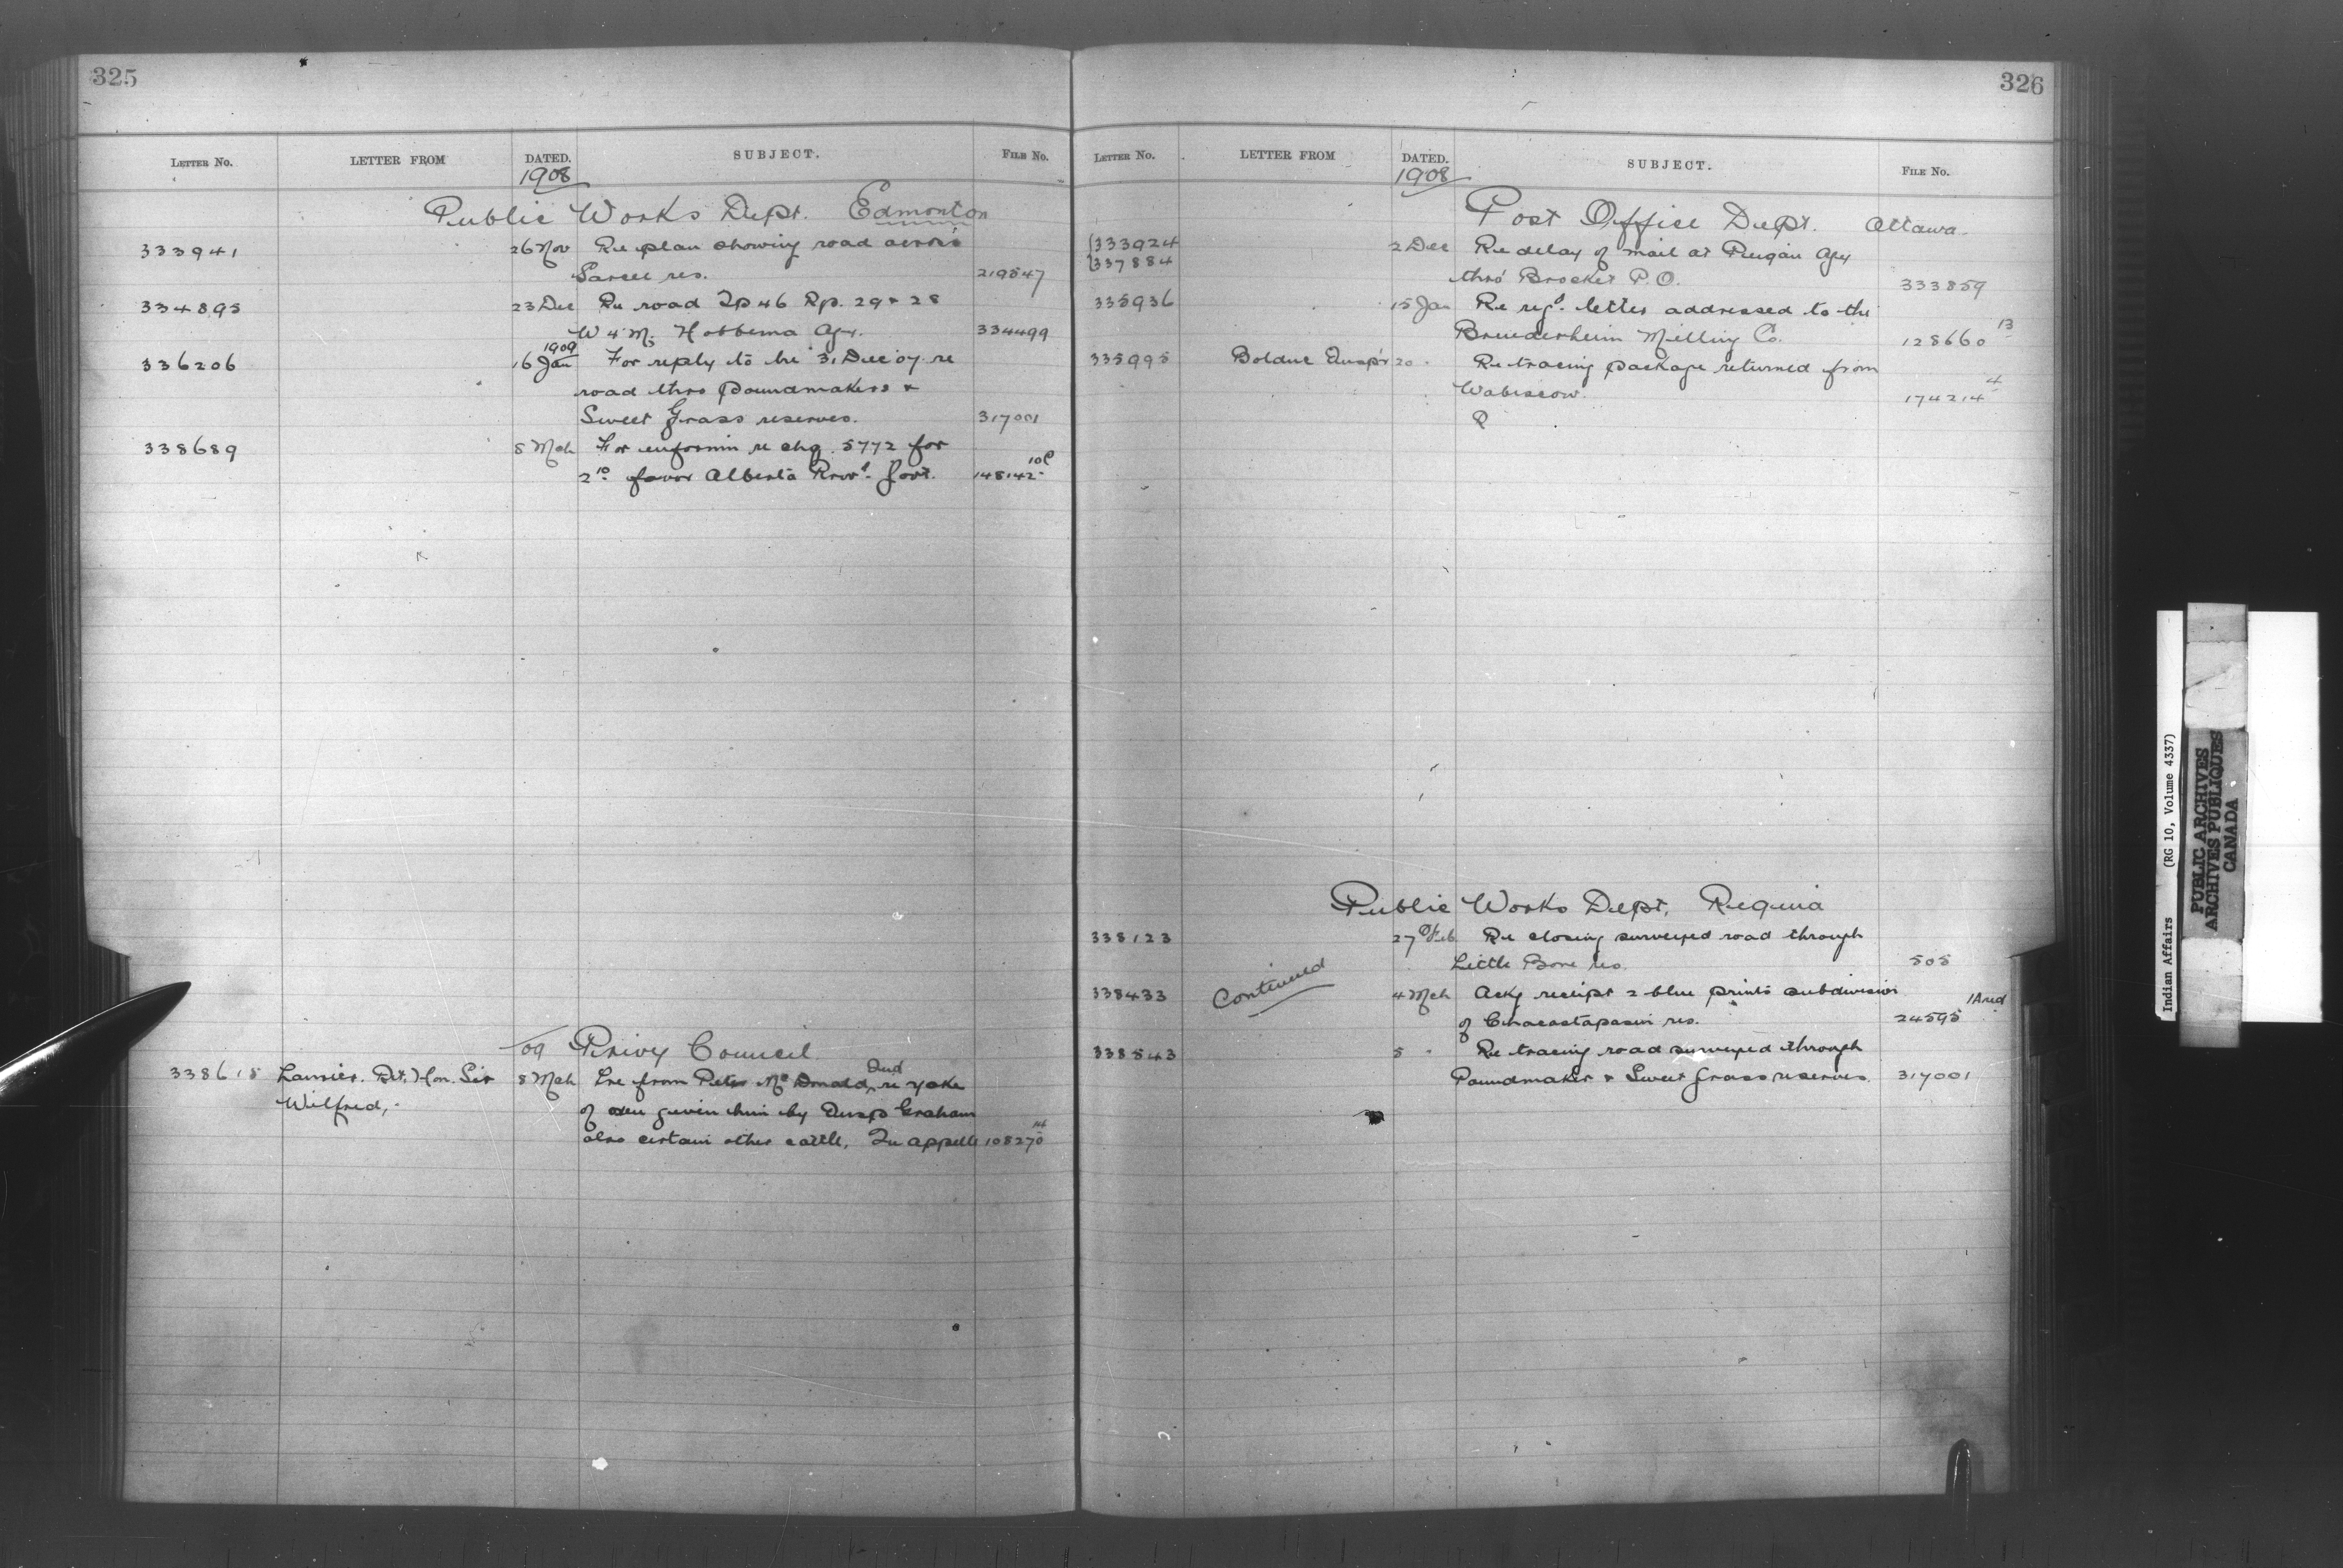 325
LETTER NO. LETTER FROM DATED. SUBJECT. FILE NO.
1908
Public Works Dept. Edmonton
333941 26 Nov Re plan showing road across
Sarcee res. 219547
334895 23 Dec Re road Tp 46 Rp. 29 & 28
W 4 M, Hobbema Agy. 334499
1909
336206 16 Jan For reply to lre 31 Dec 07 re
road thro Poundmakers &
Sweet Grass reserves. 317001
338689 8 Mch For informn re chq. 5772 for
2.10 favor Alberta Provl. Govt. 148142 10C
/09 Privy Council
338615 Laurier. Rt. Hon. Sir 8 Mch Lre from Peter McDonald, Ind re yoke
Wilfred, of oxen given him by Insp Graham
also certain other cattle, Qu'appelle 108270 14
326
LETTER NO. LETTER FROM DATED. SUBJECT. FILE NO.
1908
Post Office Dept. Ottawa
333924 2 Dec Re delay of mail at Peigan Agy
337884 thro' Brocket P.O. 333859
335936 15 Jan Re regd. letter addressed to the
Bruederheim Milling Co. 128660 13
335995 Bolduc Insp'r 20 " Re tracing package returned from
Wabiscow. 174214 4
P
Public Works Dept, Regina
338123 27 Feb Re closing surveyed road through
Little Bone res. 505
338433 Continued 4 Mch Ackg receipt 2 blue prints subdivision
of Chacastapasin res. 24595 1A red
338543 5 " Re tracing road surveyed through
Poundmaker & Sweet Grass reserves. 317001
Indian Affairs (RG 10, Volume 4337)
PUBLIC ARCHIVES
ARCHIVES PUBLIQUES
CANADA